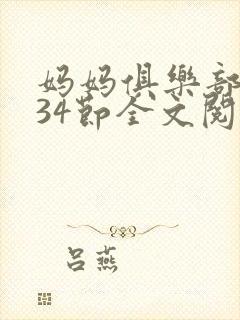 妈妈俱樂部
34節全文閱
吕燕